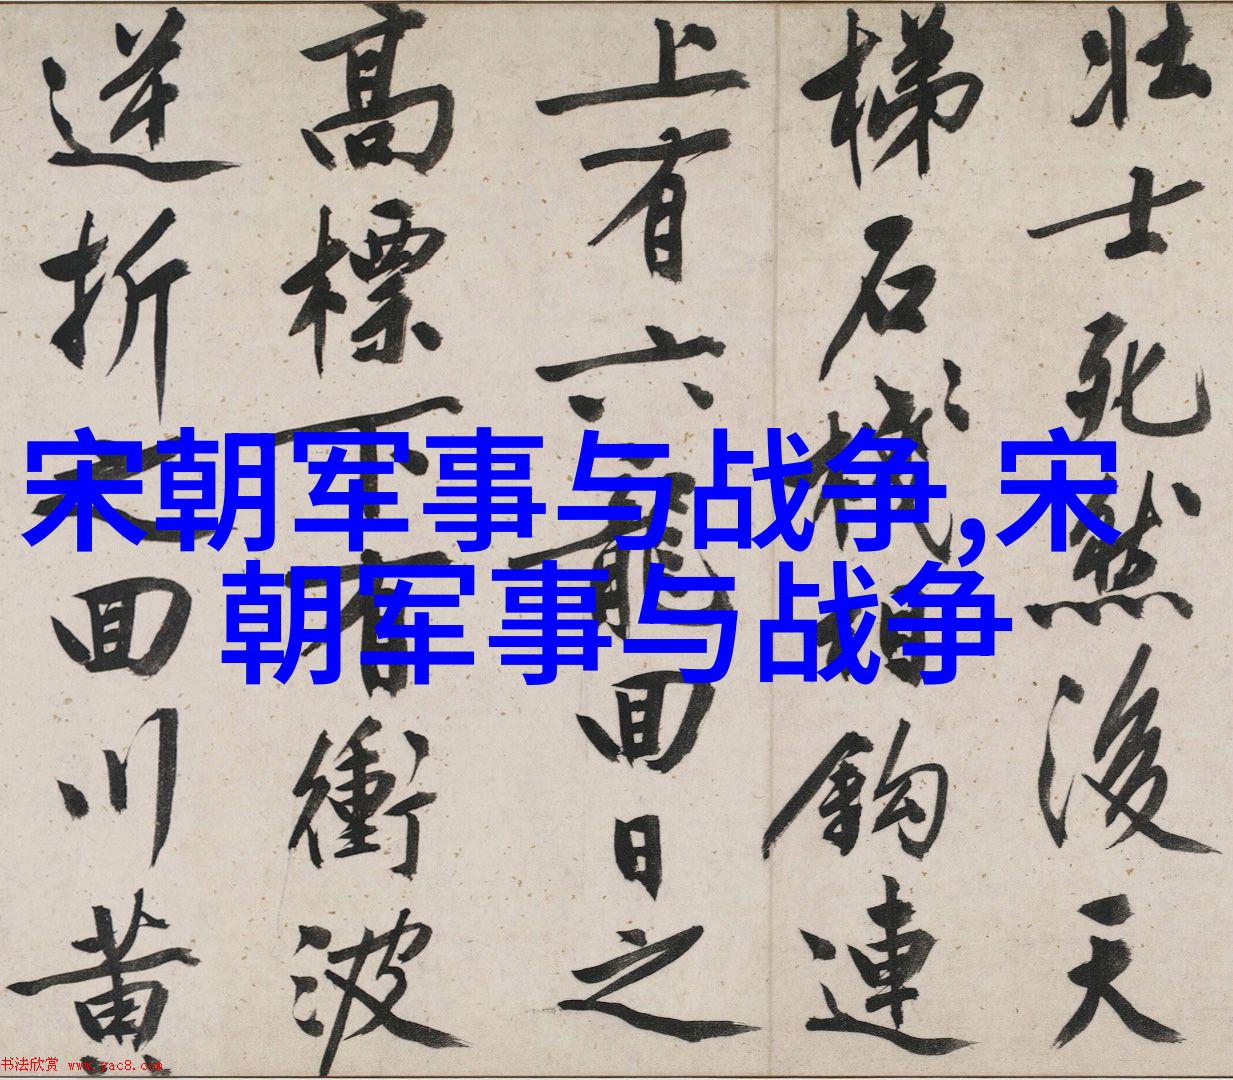 壮士死然後天
梯石棧相鈎連
上有六龍回日之
高標下有衝波
逆折之回川黄
宋朝军事与战争,宋
朝军事与战争
书法欣赏 www.yac8.com